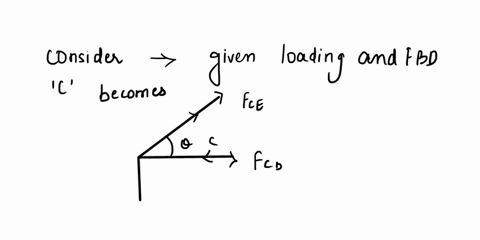 consider → given loading and FBD
'C' becomes
FCE
θ C
FCD